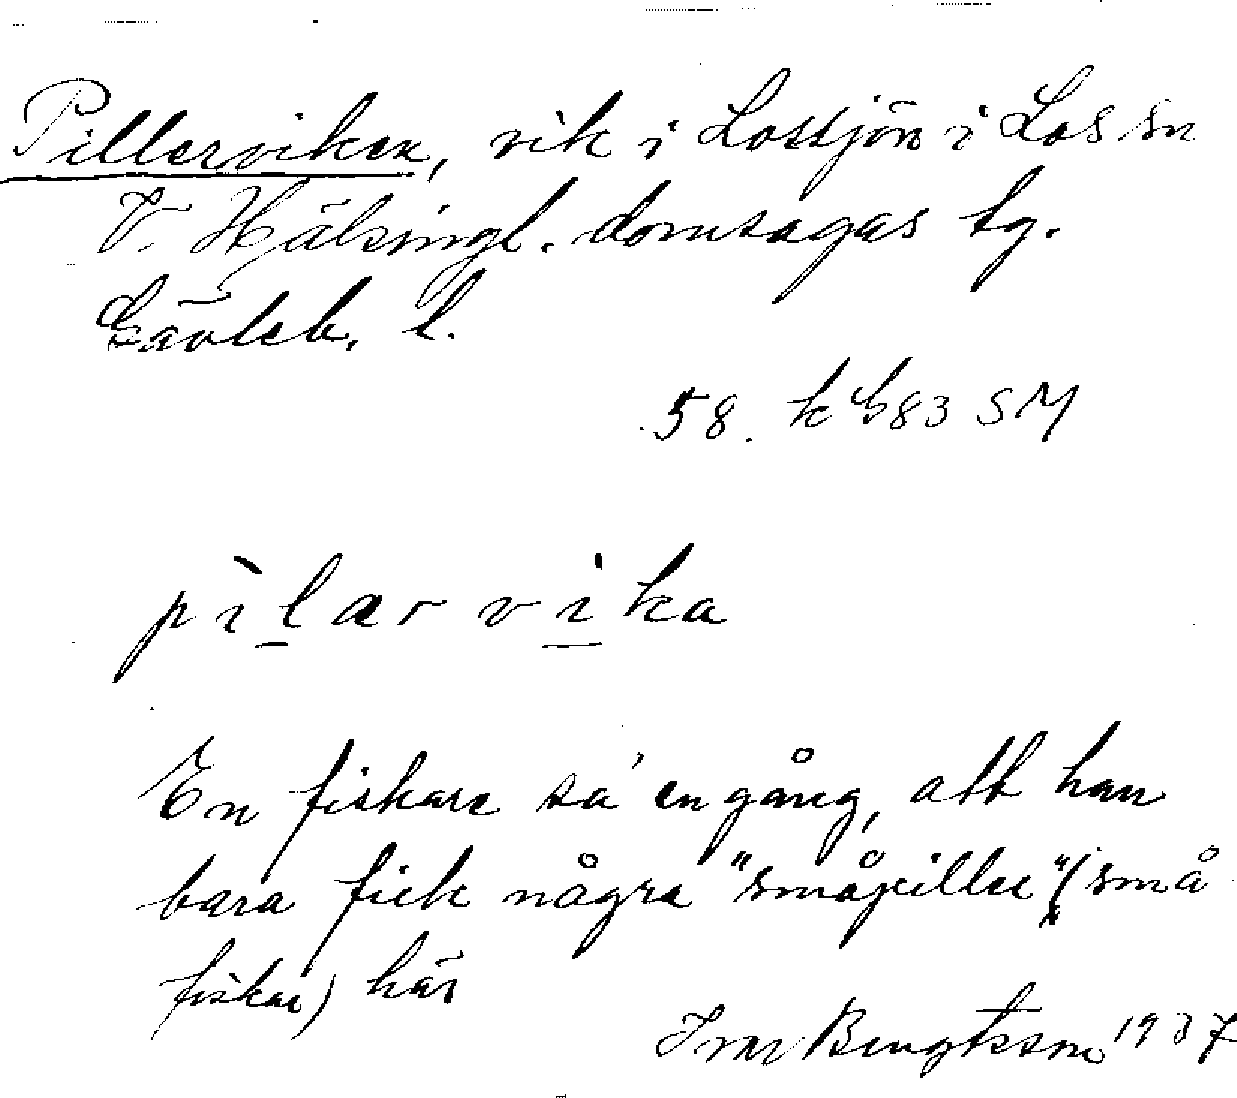 Pillerviken, vik i Lossjön i Los sn
V. Hälsingl. domsagas tg.
Gävleb. l.
58. k G83 SM
pìlær vika
En fiskare sa' en gång, att han
bara fick några "småpiller" (små
fiskar) här
Ivar Bengtsson 1937